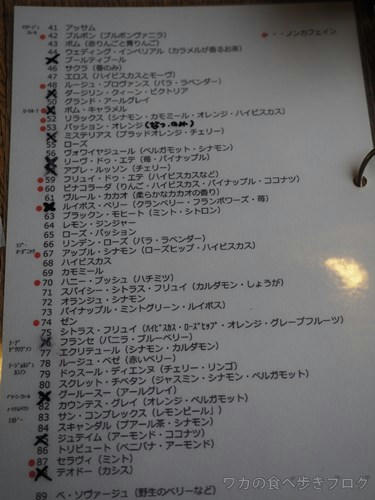 41 アッサム
42 ブルボン（ブルボンヴァニラ）
・・ノンカフェイン
43 ポム（赤りんごと青りんご）
44 ウェディング・インペリアル（カラメルが香るお茶）
45 プールティプール
46 サクラ（春のみ）
47 エロス（ハイビスカスとモーヴ）
48 ルージュ・プロヴァンス（バラ・ラベンダー）
49 ダージリン・クィーン・ビクトリア
50 グランド・アールグレイ
51 ポム・キャラメル
52 リラックス（シナモン・カモミール・オレンジ・ハイビスカス）
53 パッション・オレンジ
54 ミステリアス（ブラッドオレンジ・チェリー）
55 ローズ
56 ヴォワイヤジュール（ベルガモット・シナモン）
57 リーヴ・ドゥ・エテ（苺・パイナップル）
58 アプレ・ルッソン（チェリー）
59 フリュイ・ドゥ・エテ（ハイビスカスなど）
60 ピナコラーダ（りんご・ハイビスカス・パイナップル・ココナツ）
61 ヴルール・カカオ（柔らかなカカオの香り）
62 ルイボス・ベリー（クランベリー・フランボワーズ・苺）
63 ブラックン・モヒート（ミント・シトロン）
64 レモン・ジンジャー
65 ローズ・パッション
66 リンデン・ローズ（バラ・ラベンダー）
67 アップル・シナモン（ローズヒップ・ハイビスカス）
68 ハイビスカス
69 カモミール
70 ハニー・ブッシュ（ハチミツ）
71 スパイシー・シトラス・フリュイ（カルダモン・しょうが）
72 オランジュ・シナモン
73 パイナップル・ミントグリーン・ルイボス）
74 ゼン
75 シトラス・フリュイ（ハイビスカス・ローズヒップ・オレンジ・グレープフルーツ）
76 フランセ（バニラ・ブルーベリー）
77 エクリチュール（シナモン・カルダモン）
78 ルージュ・ベゼ（赤いベリー）
79 ドゥスール・ディエンヌ（チェリー・リンゴ）
80 スクレット・チベタン（ジャスミン・シナモン・ベルガモット）
81 グルースアー（アールグレイ）
82 カウンテス・グレイ（オレンジ・ベルガモット）
83 サン・コンプレックス（レモンピール））
84 スキャンダル（プアール茶・シナモン）
85 ジュテイム（アーモンド・ココナツ）
86 トリビュート（ベニバナ・アーモンド）
87 セラヴィ（ミント）
88 テオドー（カシス）
89 ペ・ソヴァージュ（野生のベリーなど）
ワカの食べ歩きブログ